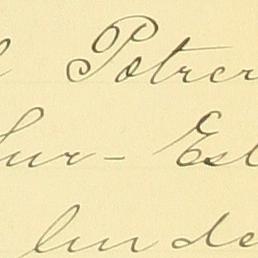 Potrer
Sur - Est
linde